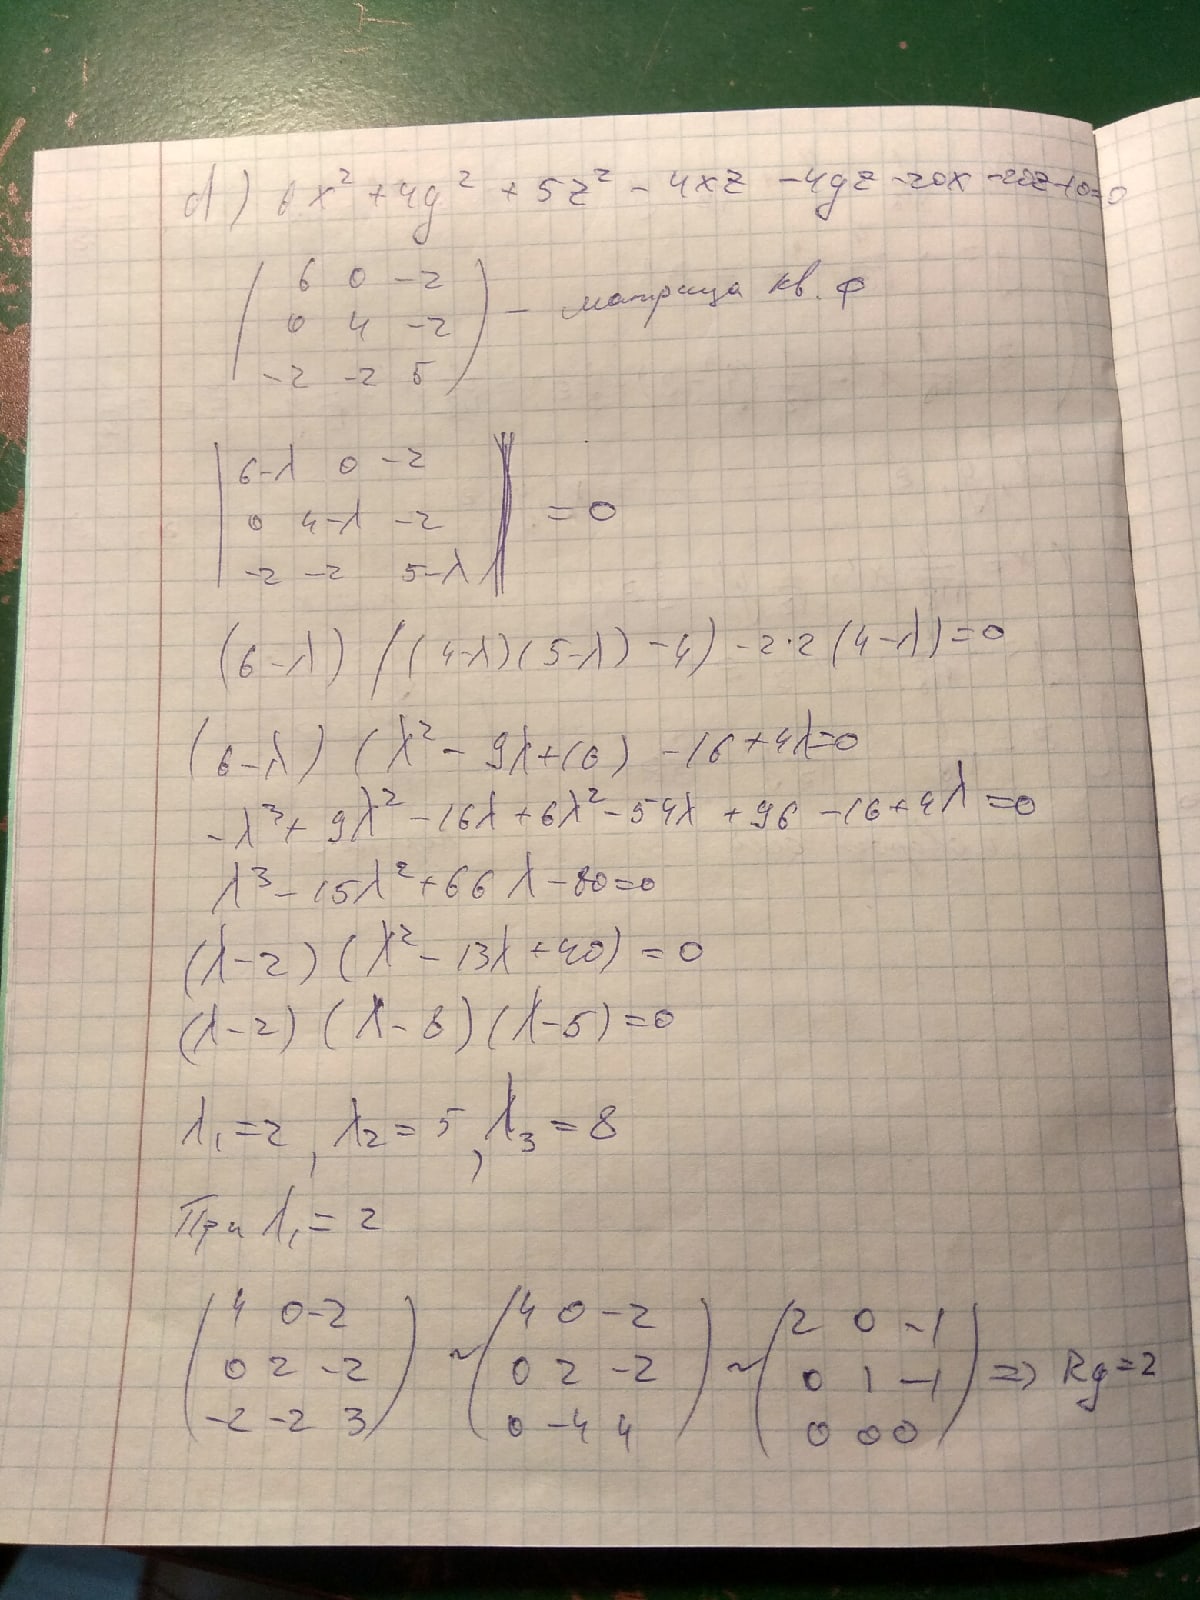 d) 6x² + 4y² + 5z² - 4xz - 4yz - 20x - 20z + 10 = 0
6 0 -2
0 4 -2 - матрица кв. ф
-2 -2 5
6-λ 0 -2
0 4-λ -2 = 0
-2 -2 5-λ
(6-λ) ((4-λ)(5-λ) - 4) - 2·2 (4-λ) = 0
(6-λ) (λ² - 9λ + 16) - 16 + 4λ = 0
-λ³ + 9λ² - 16λ + 6λ² - 54λ + 96 - 16 + 4λ = 0
λ³ - 15λ² + 66λ - 80 = 0
(λ-2) (λ² - 13λ + 40) = 0
(λ-2) (λ-8) (λ-5) = 0
λ₁ = 2, λ₂ = 5, λ₃ = 8
При λ₁ = 2
4 0 -2 4 0 -2 2 0 -1
0 2 -2 ~ 0 2 -2 ~ 0 1 -1 => Rg = 2
-2 -2 3 0 -4 4 0 0 0